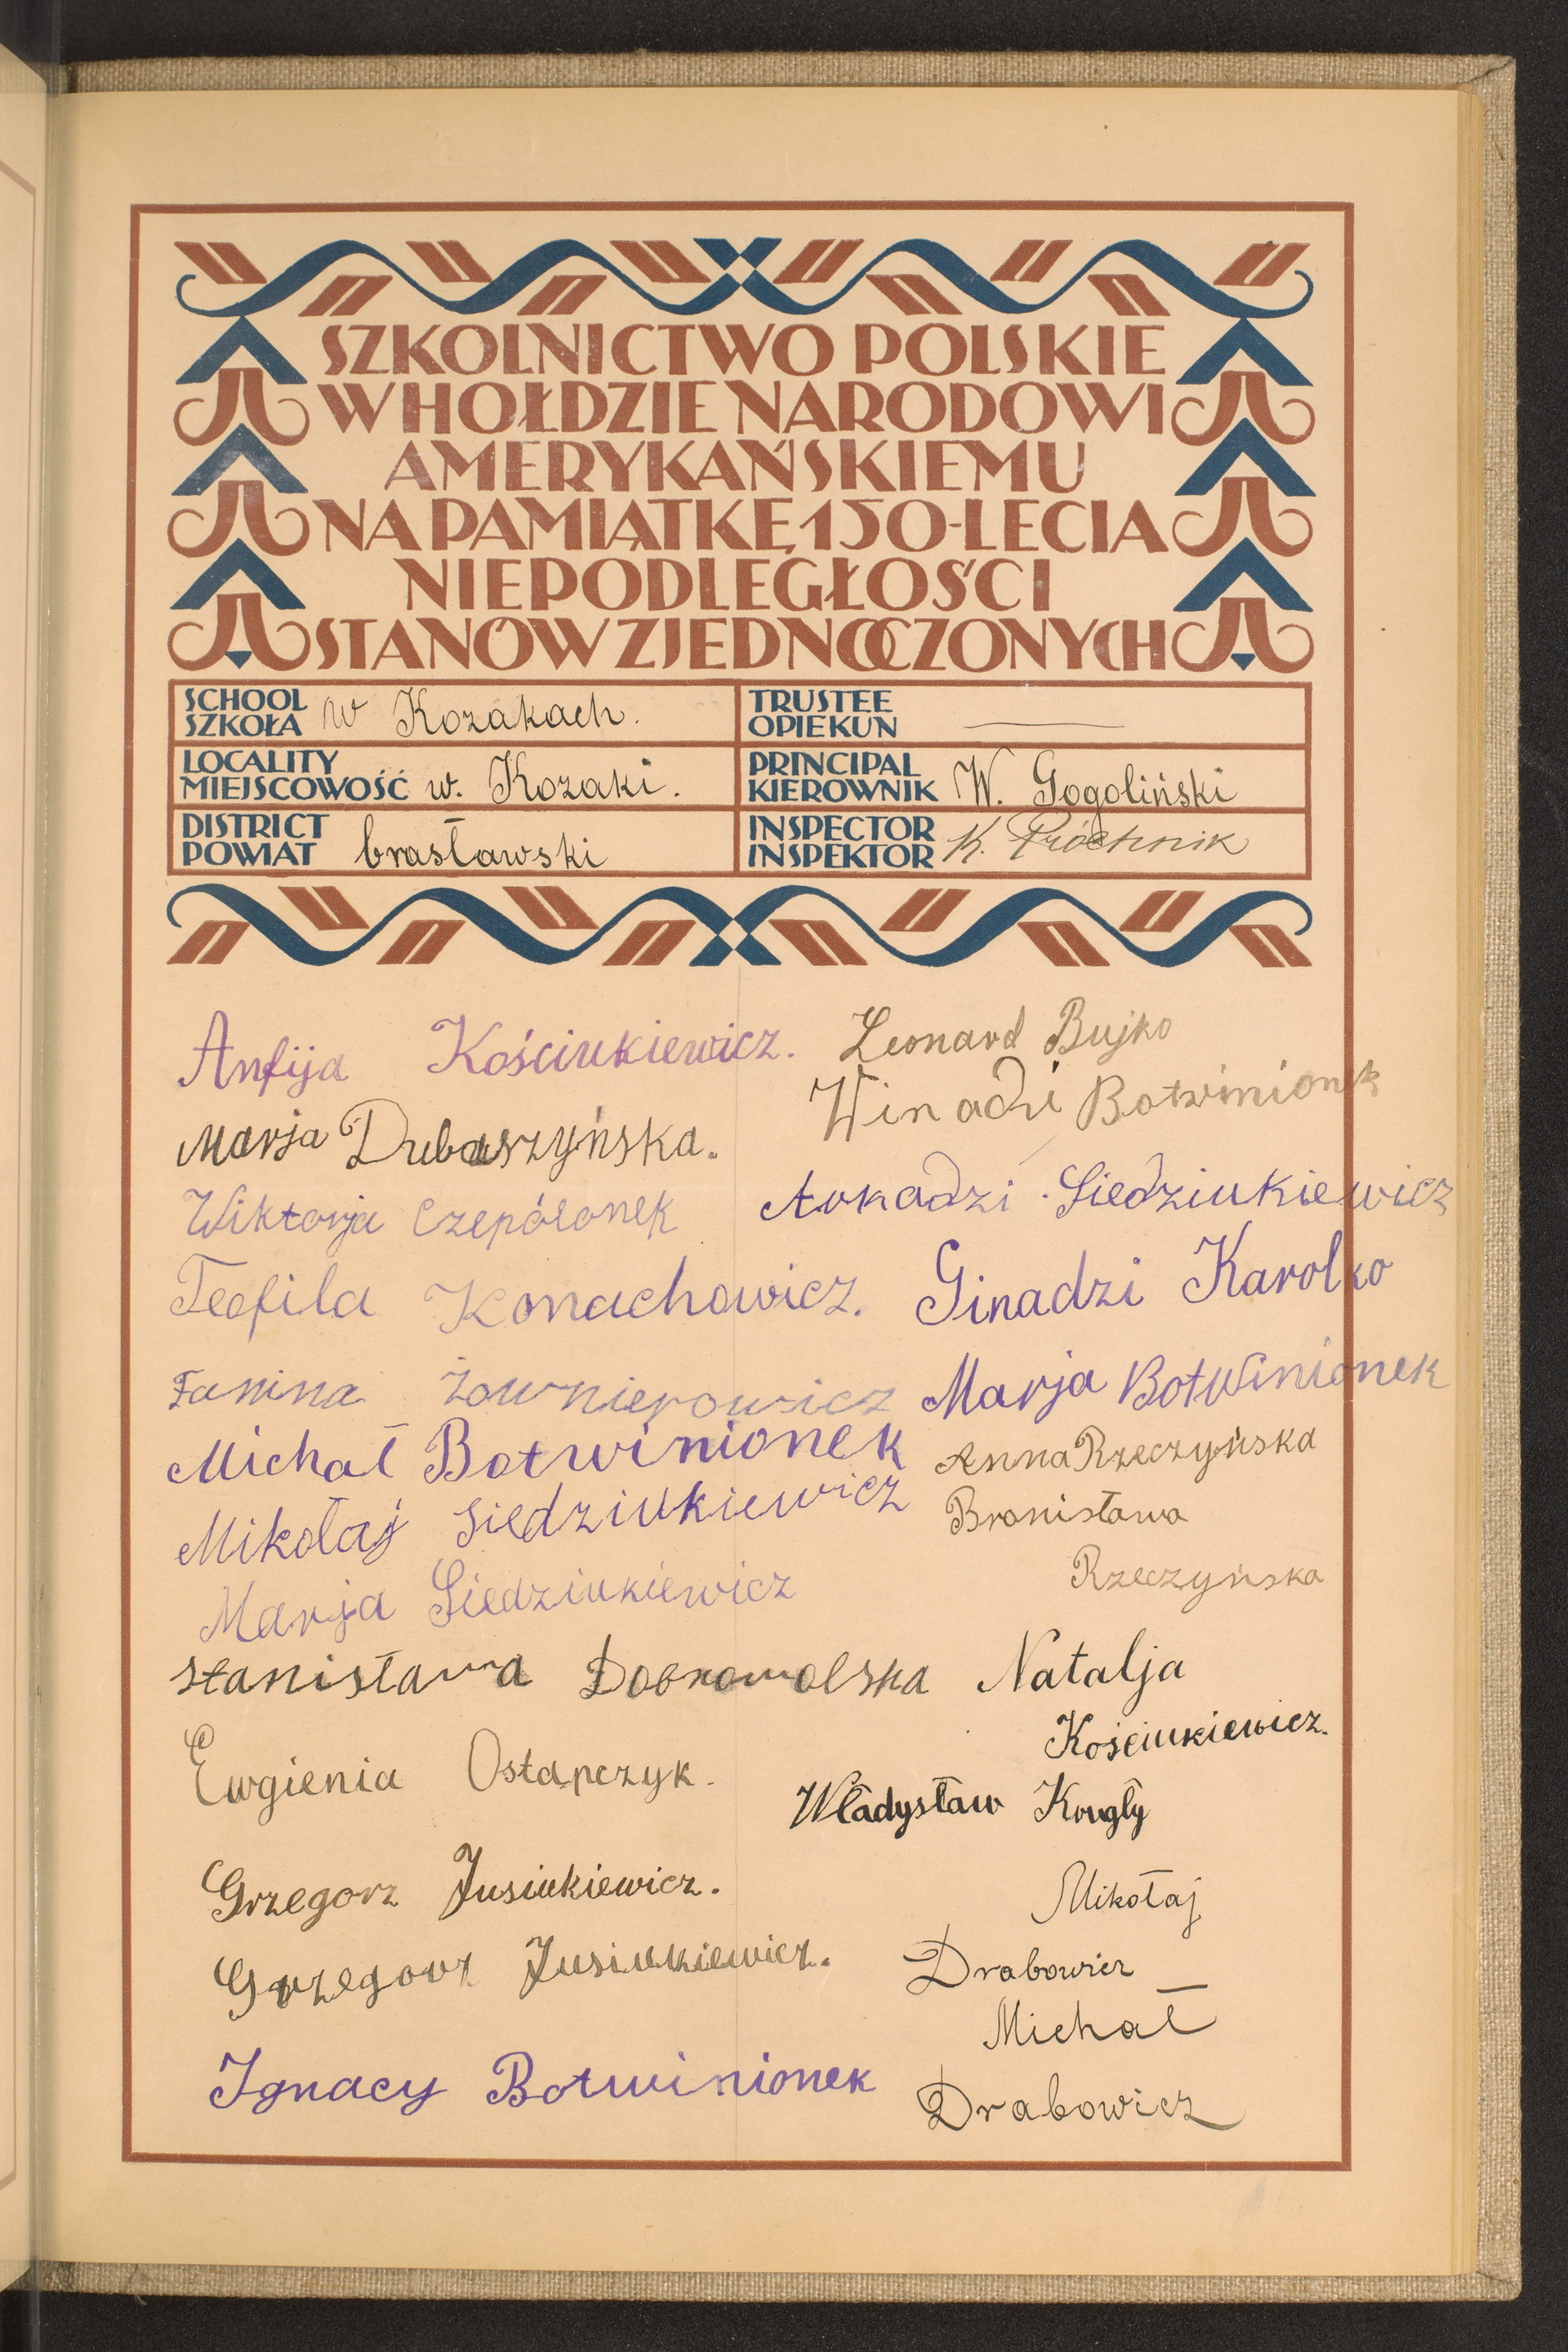 SZKOLNICTWO POLSKIE
W HOŁDZIE NARODOWI
AMERYKAŃSKIEMU
NA PAMIĄTKĘ 150-LECIA
NIEPODLEGŁOŚCI
STANÓW ZJEDNOCZONYCH
SCHOOL
SZKOŁA w Kozakach.
TRUSTEE
OPIEKUN
LOCALITY
MIEJSCOWOŚĆ w. Kozaki.
PRINCIPAL
KIEROWNIK W. Gogoliński
DISTRICT
POWIAT brasławski
INSPECTOR
INSPEKTOR K. Próchnik
Anfija Kościukiewicz.
Marja Dubaszyńska.
Wiktorja
Teofila Konachowicz.
Janina Żownierowicz
Michał Botwinionek
Mikołaj Siedziukiewicz
Marja Siedziukiewicz
Stanisława Dobrowolska
Ewgienia Ostapczyk.
Grzegorz Jusiukiewicz.
Grzegorz Jusiukiewicz.
Ignacy Botwinionek
Leonard Bujko
Winadzi Botwinionek
Arkadzi Siedziukiewicz
Ginadzi Karolko
Marja Botwinionek
Anna Rzeczyńska
Bronisława
Rzeczyńska
Natalja
Kościukiewicz.
Władysław
Mikołaj
Drabowicz
Michał
Drabowicz